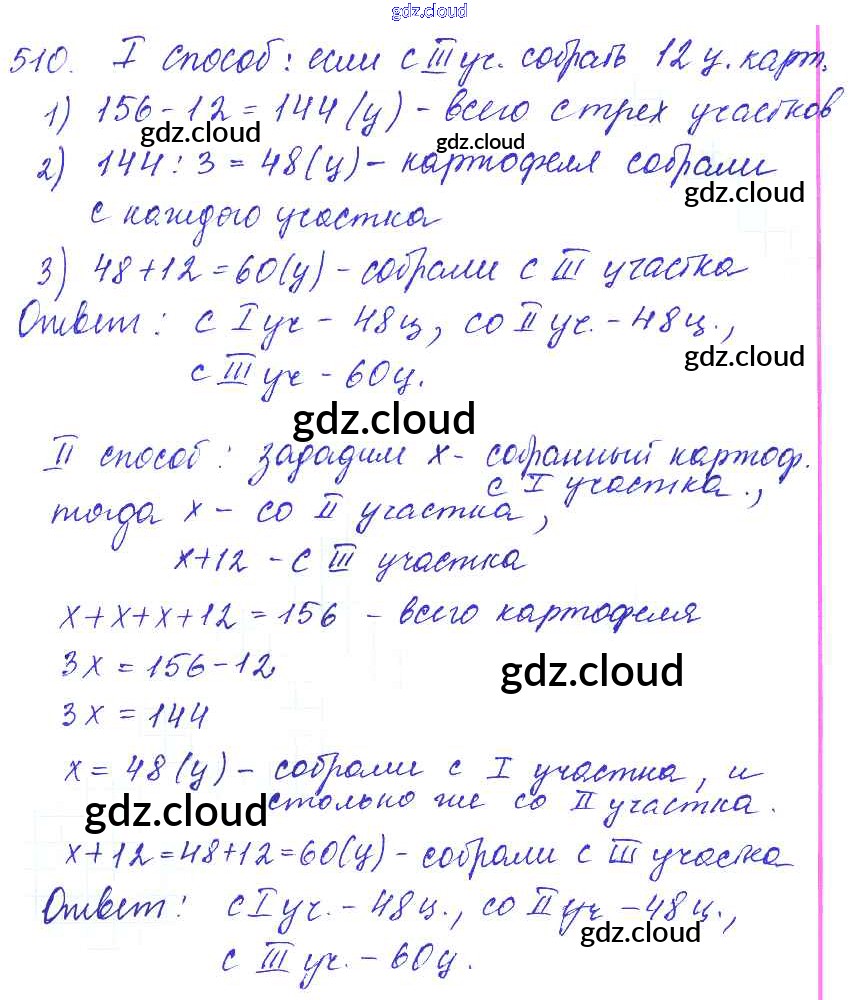 gdz.cloud
510. I способ: если с III уч. собрать 12 ц. карт.
1) 156 - 12 = 144 (ц) - всего с трех участков
gdz.cloud gdz.cloud
2) 144 : 3 = 48 (ц) - картофеля собрали
gdz.cloud
с каждого участка
3) 48 + 12 = 60 (ц) - собрали с III участка
Ответ: с I уч - 48 ц, со II уч. - 48 ц.,
gdz.cloud
с III уч - 60 ц.
gdz.cloud
II способ: зададим x - собранный картоф.
с I участка.,
тогда x - со II участка,
x + 12 - с III участка
x + x + x + 12 = 156 - всего картофеля
3x = 156 - 12
gdz.cloud
3x = 144
x = 48 (ц) - собрали с I участка, и
столько же со II участка.
gdz.cloud
x + 12 = 48 + 12 = 60 (ц) - собрали с III участка
Ответ: с I уч. - 48 ц., со II уч - 48 ц.,
gdz.cloud
с III уч. - 60 ц.